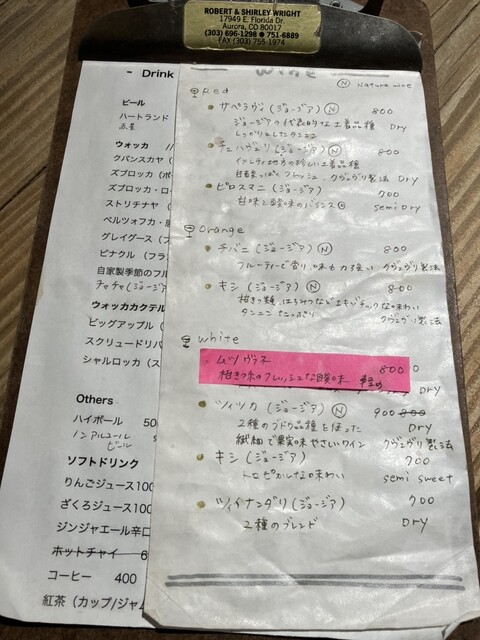 ROBERT & SHIRLEY WRIGHT
17949 E. Florida Dr.
Aurora, CO 80017
(303) 696-1298 ● 751-6889
FAX (303) 755-1974
- Drink
ビール
ハートランド
赤星
ウォッカ //
クバンスカヤ (
ズブロッカ (ポ
ズブロッカ・ロ
ストリチナヤ (
ペルツォフカ・
グレイグース (フ
ピナクル (フラ
自家製季節のフル
チャチャ (ジョージ
ウォッカカクテル
ビッグアップル (
スクリュードリバ
シャルロッカ (ス
Others
ハイボール 50
ノンアルコール
ビール
ソフトドリンク
りんごジュース100
ざくろジュース100
ジンジャエール辛口
ホットチャイ 6
コーヒー 400
紅茶 (カップ/ジャム
wine
Ⓝ Nature wine
Red
サペラヴィ (ジョージア) Ⓝ 800
ジョージアの代表的な土着品種 Dry
しっかりとしたタンニン
チェハヴェリ (ジョージア) Ⓝ 800
クヴェヴリ製法 Dry
ピロスマニ (ジョージア) 700
甘味と酸味のバランス◎ semi Dry
Orange
チバニ (ジョージア) Ⓝ 800
フルーティーで香り、味も力強い クヴェヴリ製法
キシ (ジョージア) Ⓝ 800
柑きつ類、はちみつなどエキゾチックな味わい
タンニンたっぷり クヴェヴリ製法
white
ムツヴァネ 800
柑きつ味のフレッシュな酸味 軽め
Dry
ツィツカ (ジョージア) Ⓝ 900 800
2種のブドウ品種を使った Dry
繊細で果実味やさしいワイン クヴェヴリ製法
キシ (ジョージア) 700
トロピカルな味わい semi sweet
ツィナンダリ (ジョージア) 700
2種のブレンド Dry